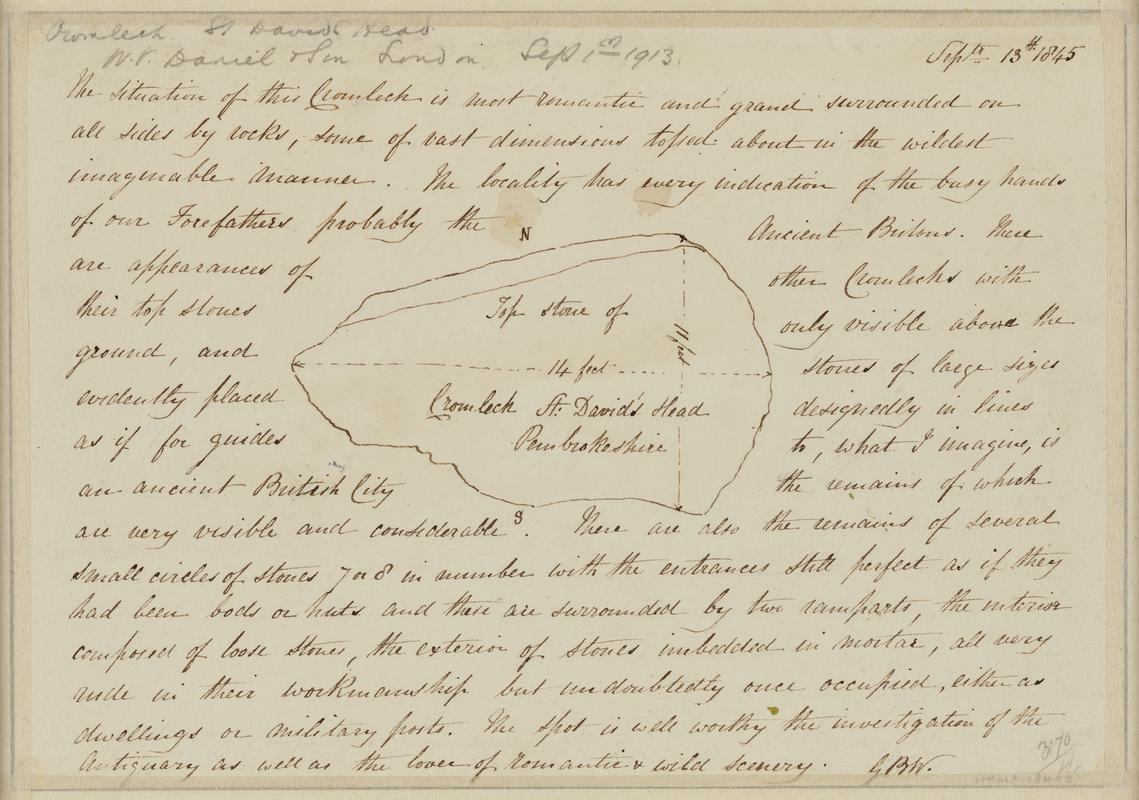 Cromlech St Davids Head
W.V. Daniel & Son London. Sept 1st 1913.
Septr 13th 1845
The situation of this Cromlech is most romantic and grand surrounded on
all sides by rocks, some of vast dimensions tossed about in the wildest
imaginable manner. The locality has every indication of the busy hands
of our Forefathers probably the Ancient Britons. There
are appearances of other Cromlechs with
their top stones only visible above the
ground, and stones of large sizes
evidently placed designedly in lines
as if for guides to, what I imagine, is
an ancient British City the remains of which
are very visible and considerable. There are also the remains of several
small circles of stones 7 or 8 in number with the entrances still perfect as if they
had been bods or huts and these are surrounded by two ramparts, the interior
composed of loose stones, the exterior of stones imbedded in mortar, all very
rude in their workmanship but undoubtedly once occupied, either as
dwellings or military posts. The spot is well worthy the investigation of the
Antiquary as well as the lover of romantic & wild scenery. GBW.
N
Top stone of
14 feet
11 feet
Cromlech St. David's Head
Pembrokeshire
S
3170